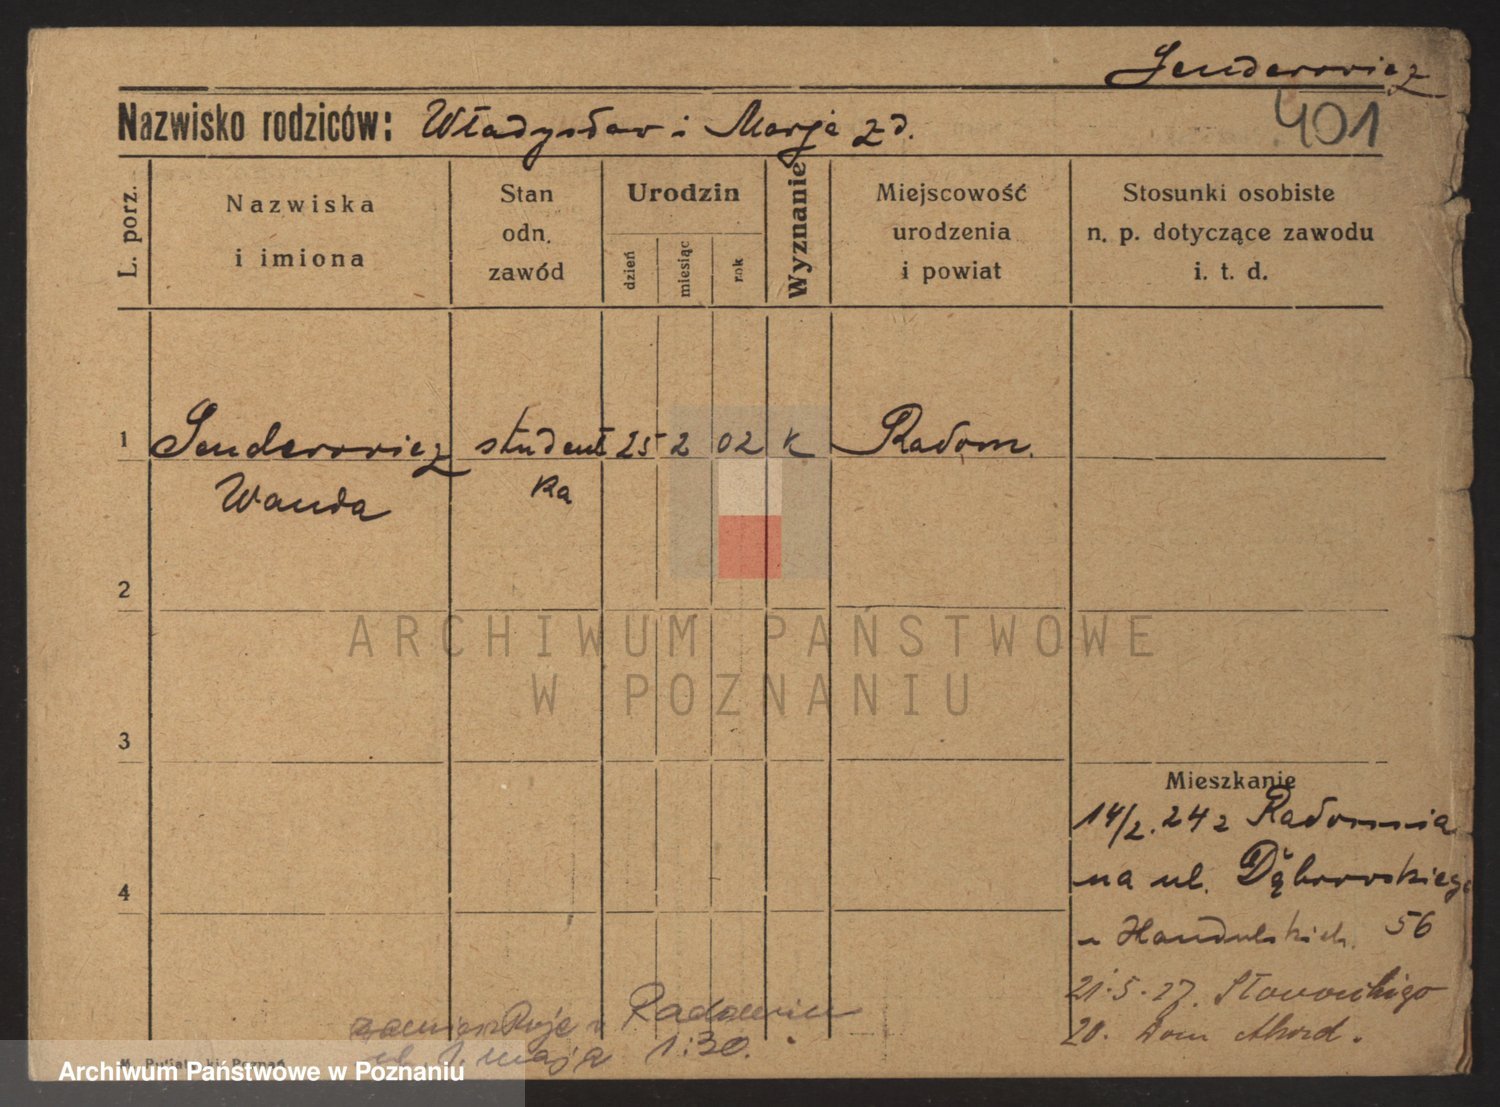 Senderowicz
401
Nazwisko rodziców: Władysław i Marja zd.
L. porz.
Nazwiska i imiona
Stan odn. zawód
Urodzin
dzień
miesiąc
rok
Wyznanie
Miejscowość urodzenia i powiat
Stosunki osobiste n. p. dotyczące zawodu i. t. d.
1 Senderowicz student 25 2 02 K Radom.
Wanda ka
2
3
4
Mieszkanie
14/2. 24 z Radomia
na ul. Dąbrowskiego
56
21.5.27. Słowackiego
20. Dom Akad.
zamieszkuje w Radomiu
ul. 1 maja
ARCHIWUM PAŃSTWOWE
W POZNANIU
Poznań
Archiwum Państwowe w Poznaniu